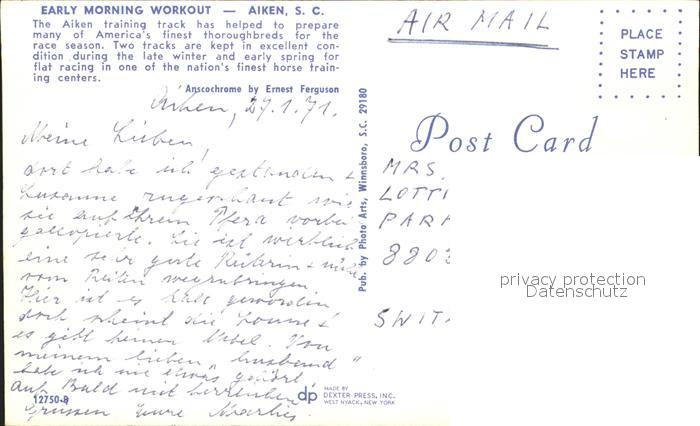 EARLY MORNING WORKOUT — AIKEN, S. C.
The Aiken training track has helped to prepare
many of America's finest thoroughbreds for the
race season. Two tracks are kept in excellent con-
dition during the late winter and early spring for
flat racing in one of the nation's finest horse train-
ing centers.
Anscochrome by Ernest Ferguson
Aiken, 29.1.71.
Meine Lieben,
dort habe ich gestanden &
Susanne zugeschaut wie
sie auf Ihrem Pferd vorbei
galoppierte. Sie ist wirklich
eine sehr gute Reiterin &
vom Reiten wegzubringen.
Hier ist es kalt geworden
doch scheint die Sonne &
es gibt keinen Nebel. Von
meinem lieben „husband"
habe ich nie etwas gehört.
Auf Bald mit herzlichen
Grüssen Eure
12750-B
Pub. by Photo Arts, Winnsboro, S.C. 29180
dp
MADE BY
DEXTER PRESS, INC.
WEST NYACK, NEW YORK
AIR MAIL
PLACE
STAMP
HERE
Post Card
MRS.
LOTTI
PAR
880
SWIT
privacy protection
Datenschutz